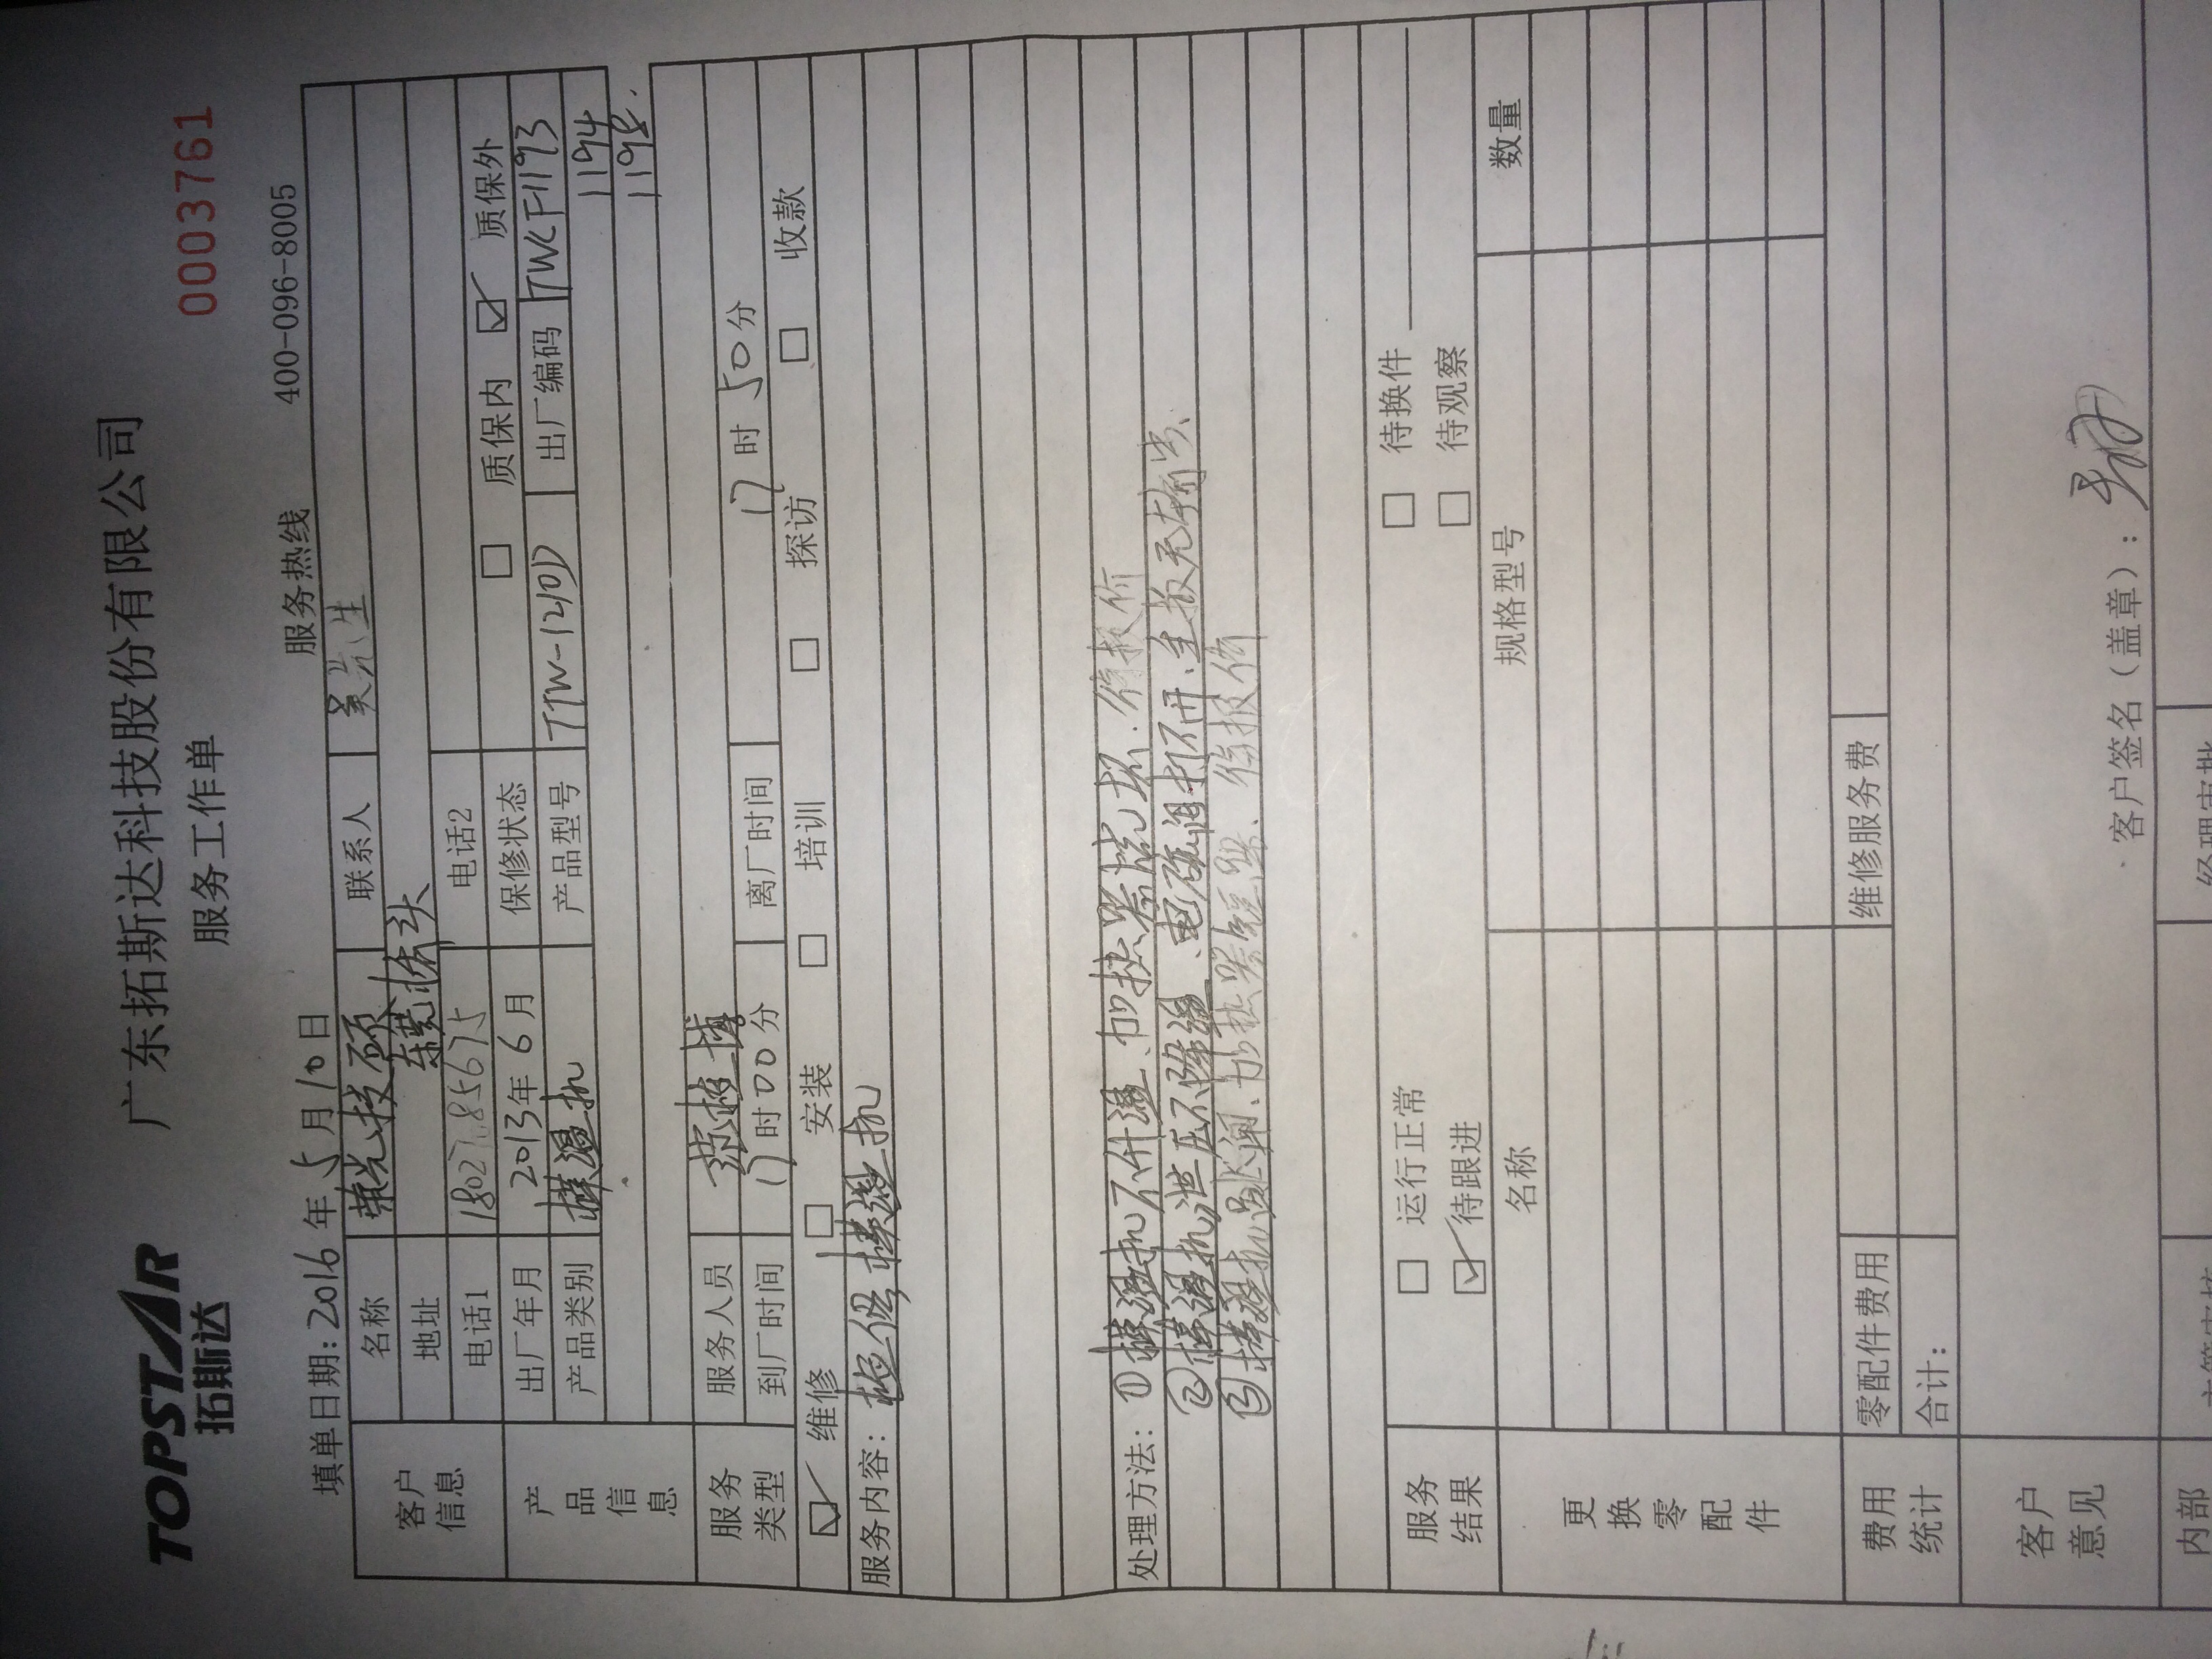 TOPSTAR
拓斯达
广东拓斯达科技股份有限公司
服务工作单
0003761
填单日期: 2016 年 5 月 10 日
服务热线 400-096-8005
客户信息
名称 荣光技研 联系人 吴先生
地址 东莞 头
电话1 电话2
产品信息
出厂年月 2013年 6 月 保修状态 □ 质保内 ☑ 质保外
产品类别 模温机 产品型号 TTW-1210D 出厂编码 TWCF1193
1194
1198.
服务类型
服务人员
到厂时间 17 时 00 分 离厂时间 17 时 50 分
☑ 维修 □ 安装 □ 培训 □ 探访 □ 收款
服务内容: 检修模温机
处理方法: ①模温机不升温、加热器 坏.待报价
②模温机泄压不降温、电磁阀打不开、主板无输出、
③模温机 闸、加热器短路、待报价
服务结果
□ 运行正常 □ 待换件
☑ 待跟进 □ 待观察
更换零配件
名称 规格型号 数量
费用统计
零配件费用 维修服务费
合计:
客户意见
客户签名（盖章）:
内部